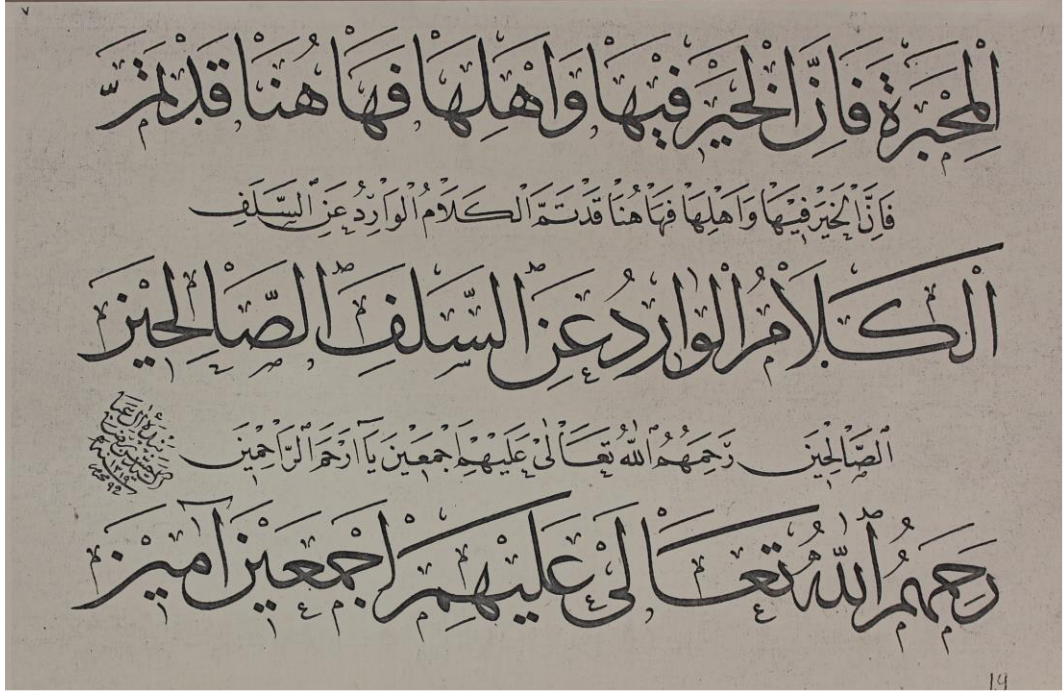 ٧
الْمِحْبَرَةِ فَاِنَّ الْخَيْرَ فِيْهَا وَاَهْلِهَا فَهَا هُنَا قَدْ تَمَّ
فَاِنَّ الْخَيْرَ فِيْهَا وَاَهْلِهَا فَهَا هُنَا قَدْ تَمَّ الْكَلَامُ الْوَارِدُ عَنِ السَّلَفِ
الْكَلَامُ الْوَارِدُ عَنِ السَّلَفِ الصَّالِحِيْنَ
الصَّالِحِيْنَ رَحِمَهُمُ اللّٰهُ تَعَالٰى عَلَيْهِمْ اَجْمَعِيْنَ يَآ اَرْحَمَ الرَّاحِمِيْنَ
رَحِمَهُمُ اللّٰهُ تَعَالٰى عَلَيْهِمْ اَجْمَعِيْنَ آمِيْنَ
19